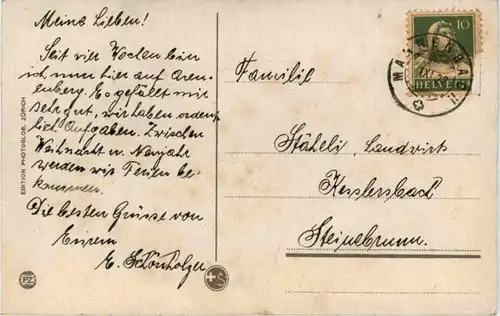 Meine Lieben!
Seit vier Wochen bin
ich nun hier auf Aren-
enberg. Es gefällt mir
sehr gut, wir haben ordent-
lich Aufgaben. Zwischen
Weihnacht u. Neujahr
werden wir Ferien be-
kommen.
Die besten Grüsse von
Eurem
E. Schönholzer
EDITION PHOTOGLOB, ZÜRICH
PZ
Familie
Stäheli, Landwirt
Kesslersbach
Steinebrunn.
10
HELVETIA